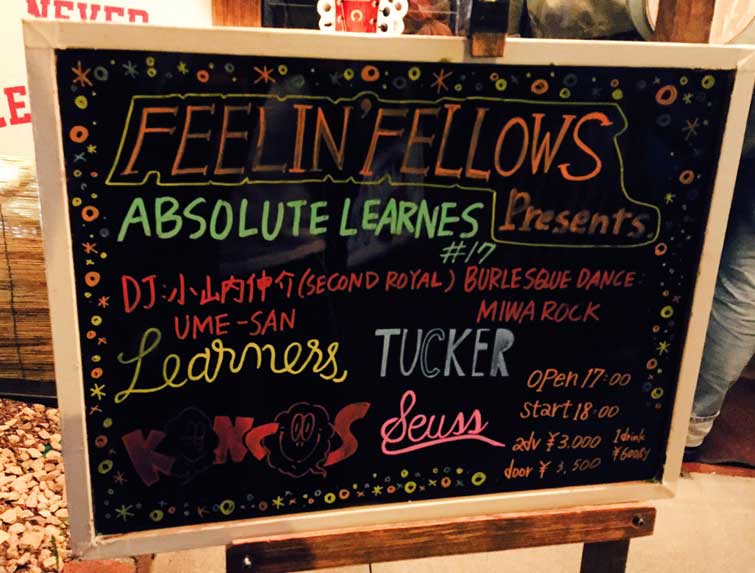 NEVER
FEELIN' FELLOWS
Presents.
ABSOLUTE LEARNES
#17
DJ:小山内仲介(SECOND ROYAL)
UME-SAN
BURLESQUE DANCE:
MIWA ROCK
Learners,
TUCKER
KONCOS
Seuss
OPen 17:00
start 18:00
adv ¥3.000
door ¥3,500
1drink